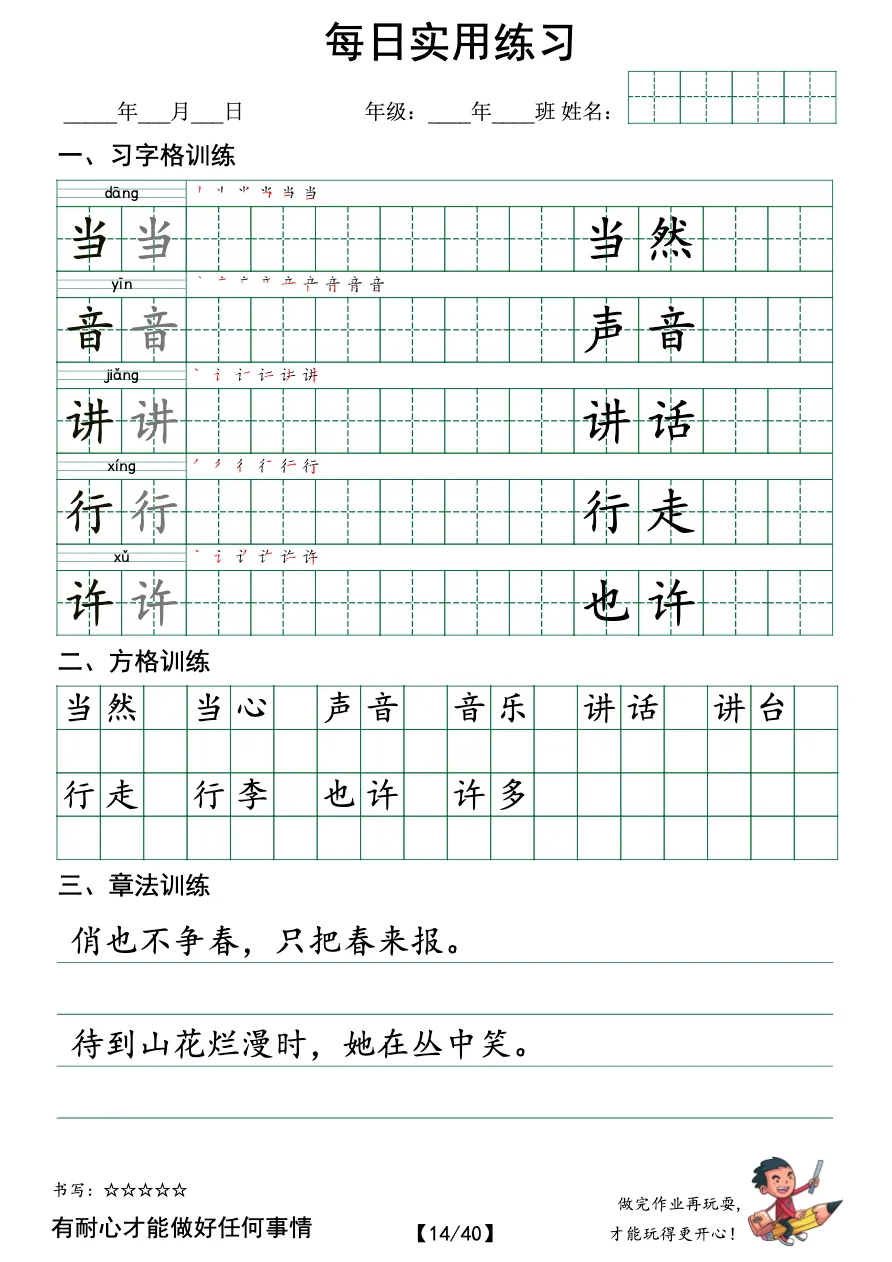 每日实用练习
_____年___月___日 年级：____年____班 姓名：
一、习字格训练
dāng
当 当 当 然
yīn
音 音 声 音
jiǎng
讲 讲 讲 话
xíng
行 行 行 走
xǔ
许 许 也 许
二、方格训练
当 然 当 心 声 音 音 乐 讲 话 讲 台
行 走 行 李 也 许 许 多
三、章法训练
俏也不争春，只把春来报。
待到山花烂漫时，她在丛中笑。
书写：☆☆☆☆☆
有耐心才能做好任何事情
【14/40】
做完作业再玩耍，
才能玩得更开心！